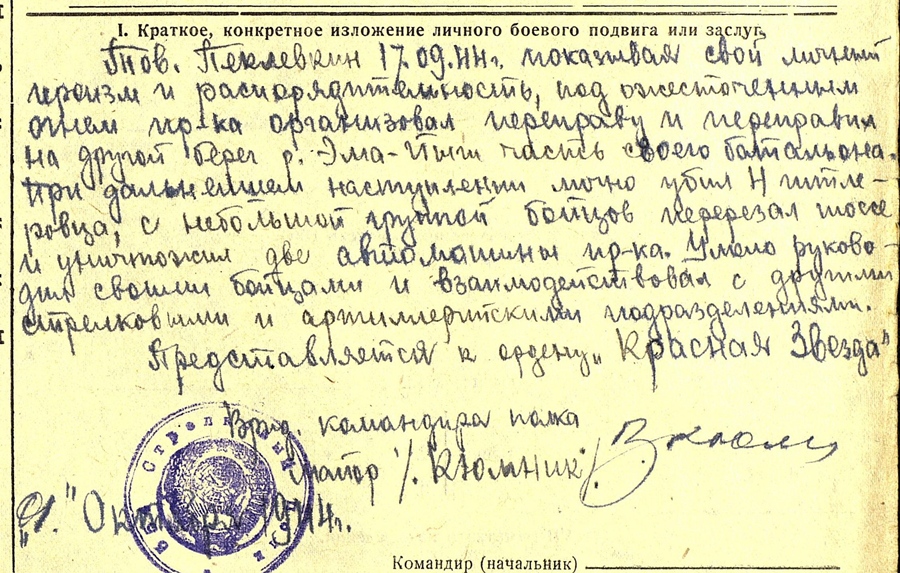 I. Краткое, конкретное изложение личного боевого подвига или заслуг.
Тов. Пеклевкин 17.09.44г. показывая свой личный
героизм и распорядительность, под ожесточенным
огнем пр-ка организовал переправу и переправил
на другой берег р. Эма-Йыги часть своего батальона.
При дальнейшем наступлении лично убил 4 гитле-
ровца, с небольшой группой бойцов перерезал шоссе
и уничтожил две автомашины пр-ка. Умело руково-
дил своими бойцами и взаимодействовал с другими
стрелковыми и артиллерийскими подразделениями.
Представляется к ордену „Красная Звезда"
Врид. командира полка
майор /. Кюльник/
" Октября 1944г.
Стрелковый
Командир (начальник)